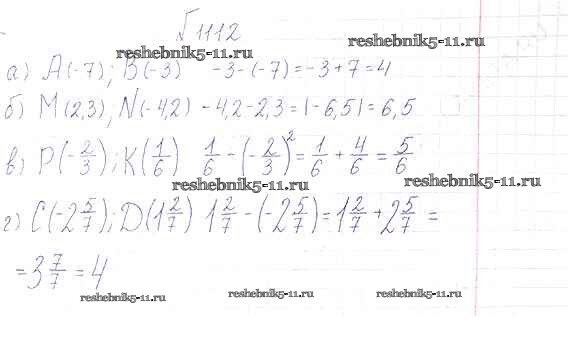 √1112
reshebnik5-11.ru reshebnik5-11.ru
а) А(-7); В(-3) -3-(-7)=-3+7=4
б) М(2,3), N(-4,2) -4,2-2,3=|-6,5|=6,5
в) Р(-2/3); К(1/6) 1/6-(-2/3)²=1/6+4/6=5/6
reshebnik5-11.ru reshebnik5-11.ru
г) С(-2 5/7); D(1 2/7) 1 2/7-(-2 5/7)=1 2/7+2 5/7=
=3 7/7=4
reshebnik5-11.ru reshebnik5-11.ru reshebnik5-11.ru